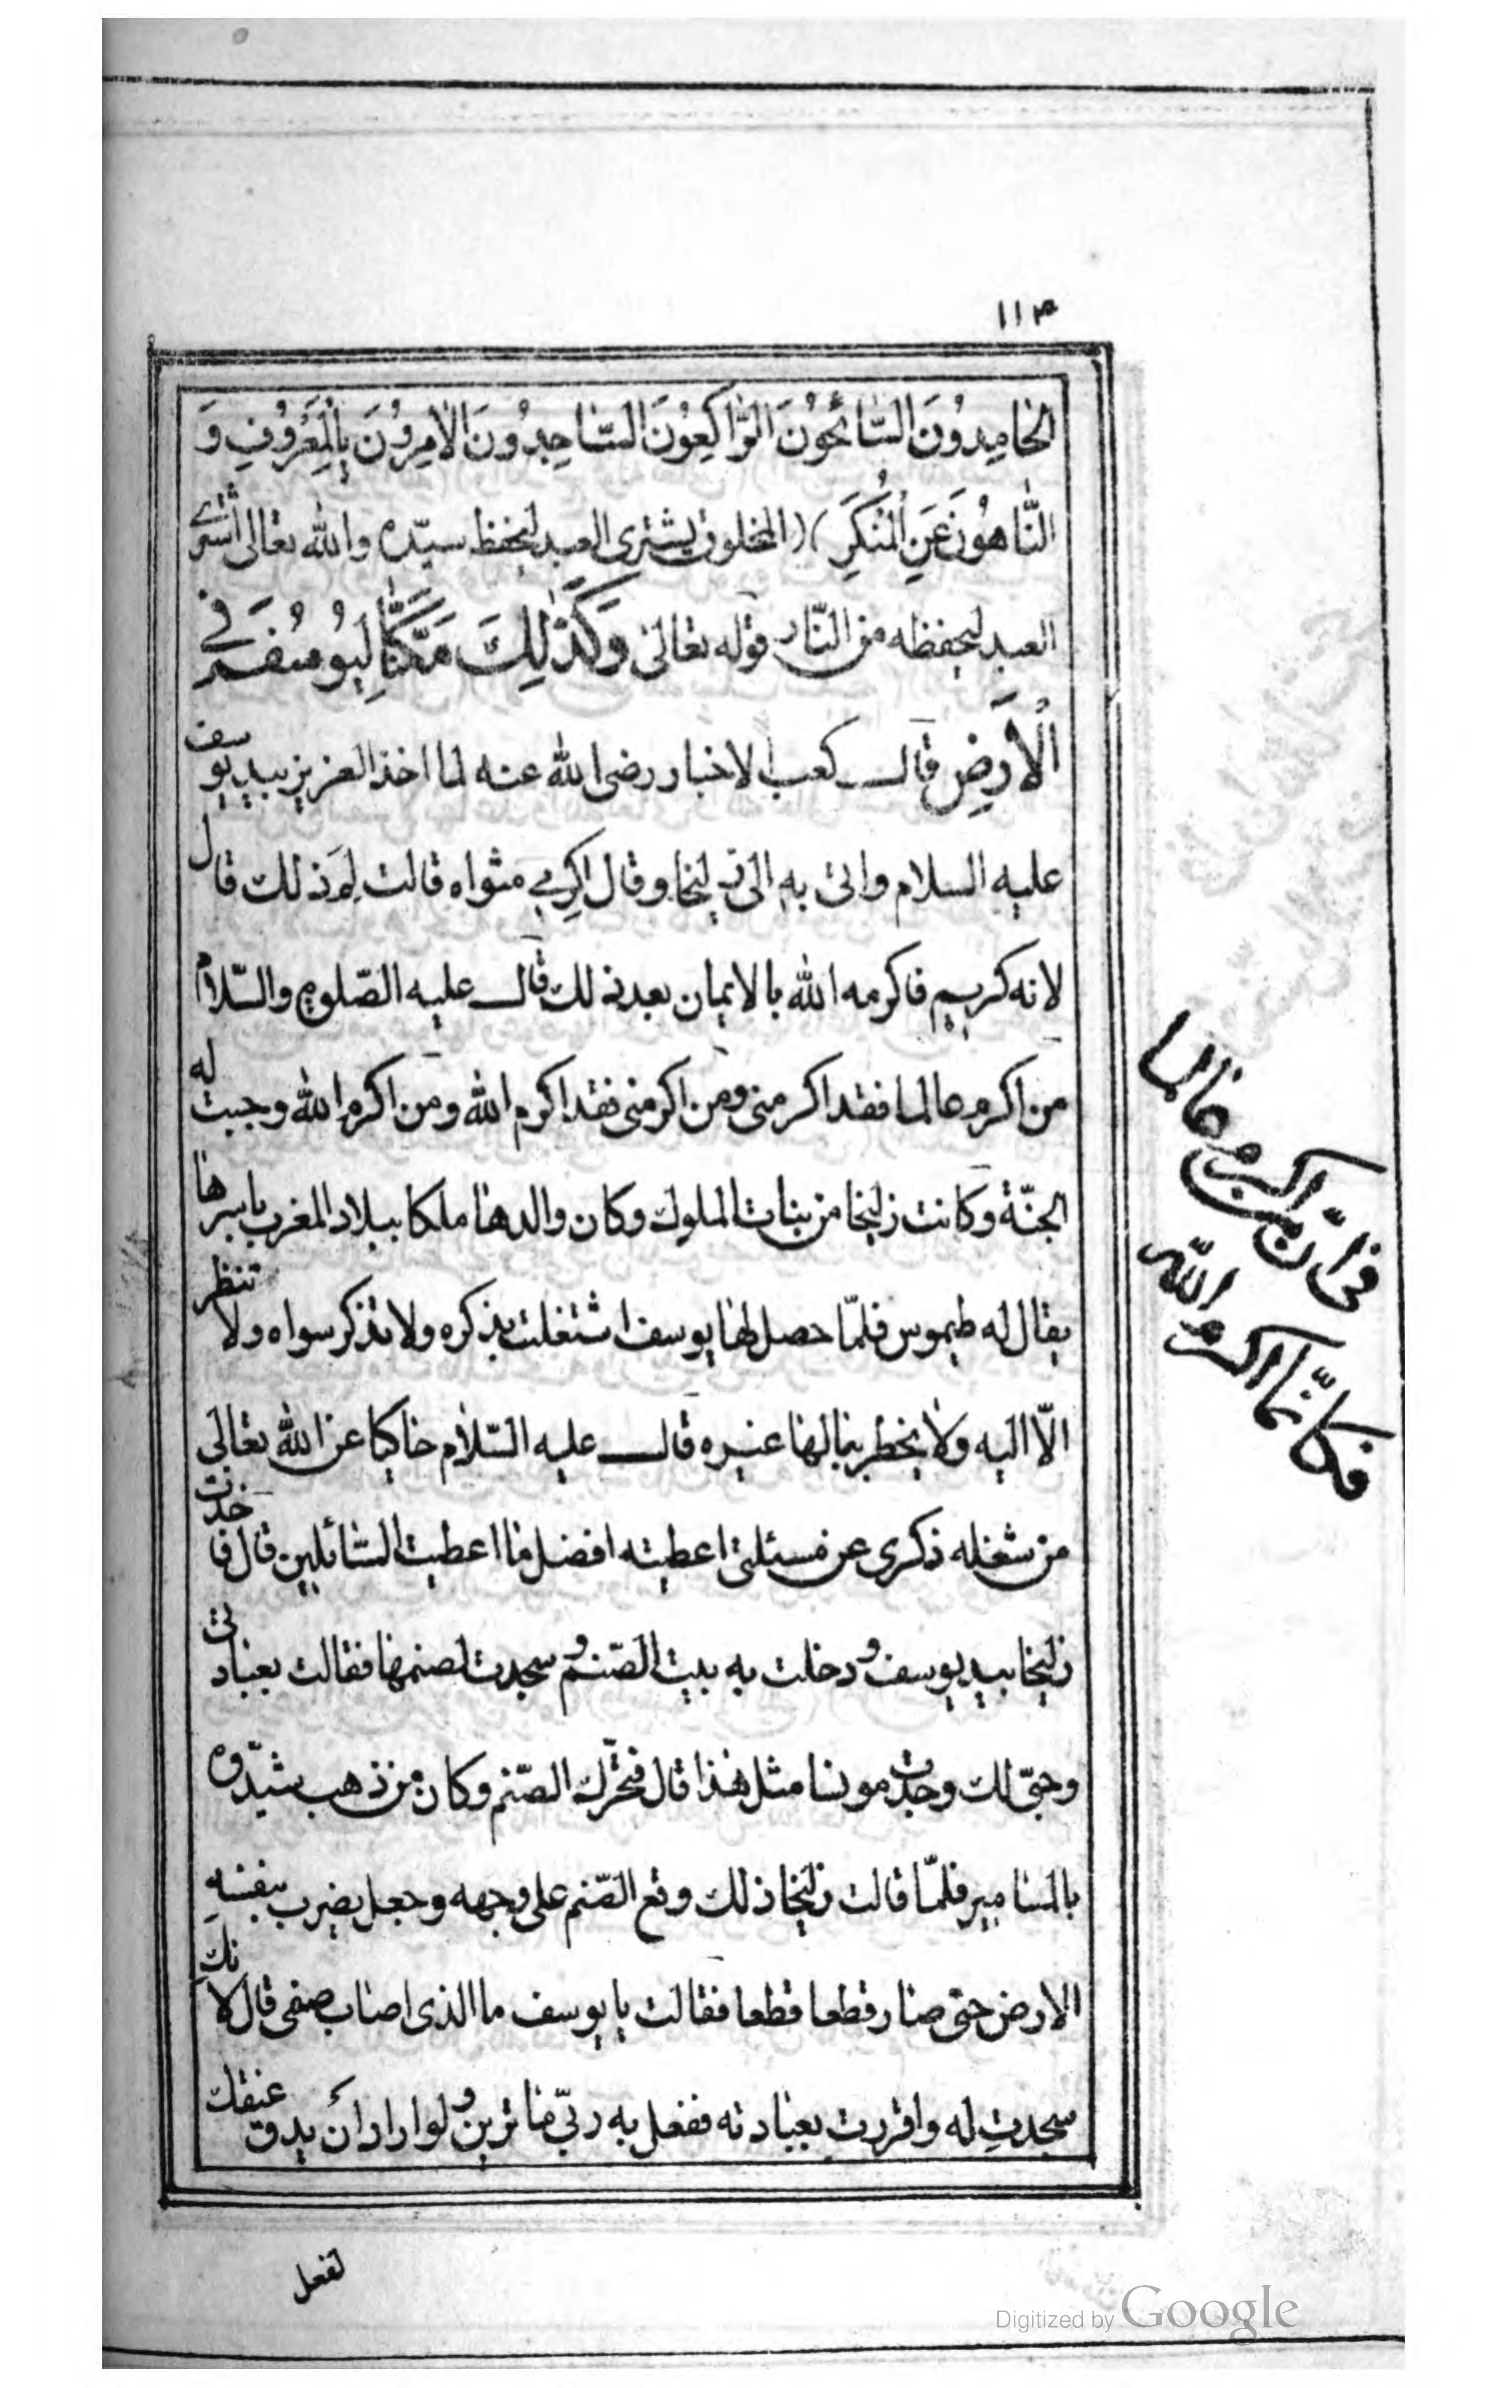 ۱۱۴
الحَامِدُونَ السَّائِحُونَ الرَّاكِعُونَ السَّاجِدُونَ الْاٰمِرُونَ بِالْمَعْرُوفِ وَ
النَّاهُونَ عَنِ الْمُنْكَرِ ) ( المخلوق يشترى العبد ليحفظ سيّده والله تعالى اشترى
العبد ليحفظه من النّار قوله تعالى وَكَذٰلِكَ مَكَّنَّا لِيُوسُفَ فِي
الْاَرْضِ قال كعب الاحبار رضى الله عنه لما اخذ العزيز بيد يوسف
عليه السلام واتى به الى زليخا وقال اكرمي مثواه قالت لِمَ ذلك قال
لانه كريم فاكرمه الله بالايمان بعد ذلك قال عليه الصّلوة والسّلام
من اكرم عالما فقد اكرمنى ومن اكرمنى فقد اكرم الله ومن اكرم الله وجبت له
الجنّة وكانت زليخا من بنات الملوك وكان والدها ملكا ببلاد المغرب باسرها
يقال له طيموس فلمّا حصل لها يوسف اشتغلت بذكره ولا تذكر سواه ولا تنظر
الّا اليه ولا يخطر ببالها غيره قال عليه السّلام حاكيا عن الله تعالى
من شغله ذكرى عن مسئلتى اعطيته افضل ما اعطيت السّائلين قال فاخذت
زليخا بيد يوسف و دخلت به بيت الصّنم و سجدت لصنمها فقالت بعبادتى
وحبّى لك وجدت مونسا مثل هذا قال فتحرّك الصّنم وكان من ذهب شيّدوه
بالمسامير فلمّا قالت زليخا ذلك وقع الصّنم على وجهه وجعل يضرب بنفسه
الارض حتى صار قطعا قطعا فقالت يا يوسف ما الذى اصاب صنمى قال لانك
سجدتِ له واقررت بعبادته ففعل به ربّي ما ترين و لو اراد ان يدق عنقك
لفعل
فى انّ من اكرم عالما
فكانّما اكرم الله
Digitized by Google